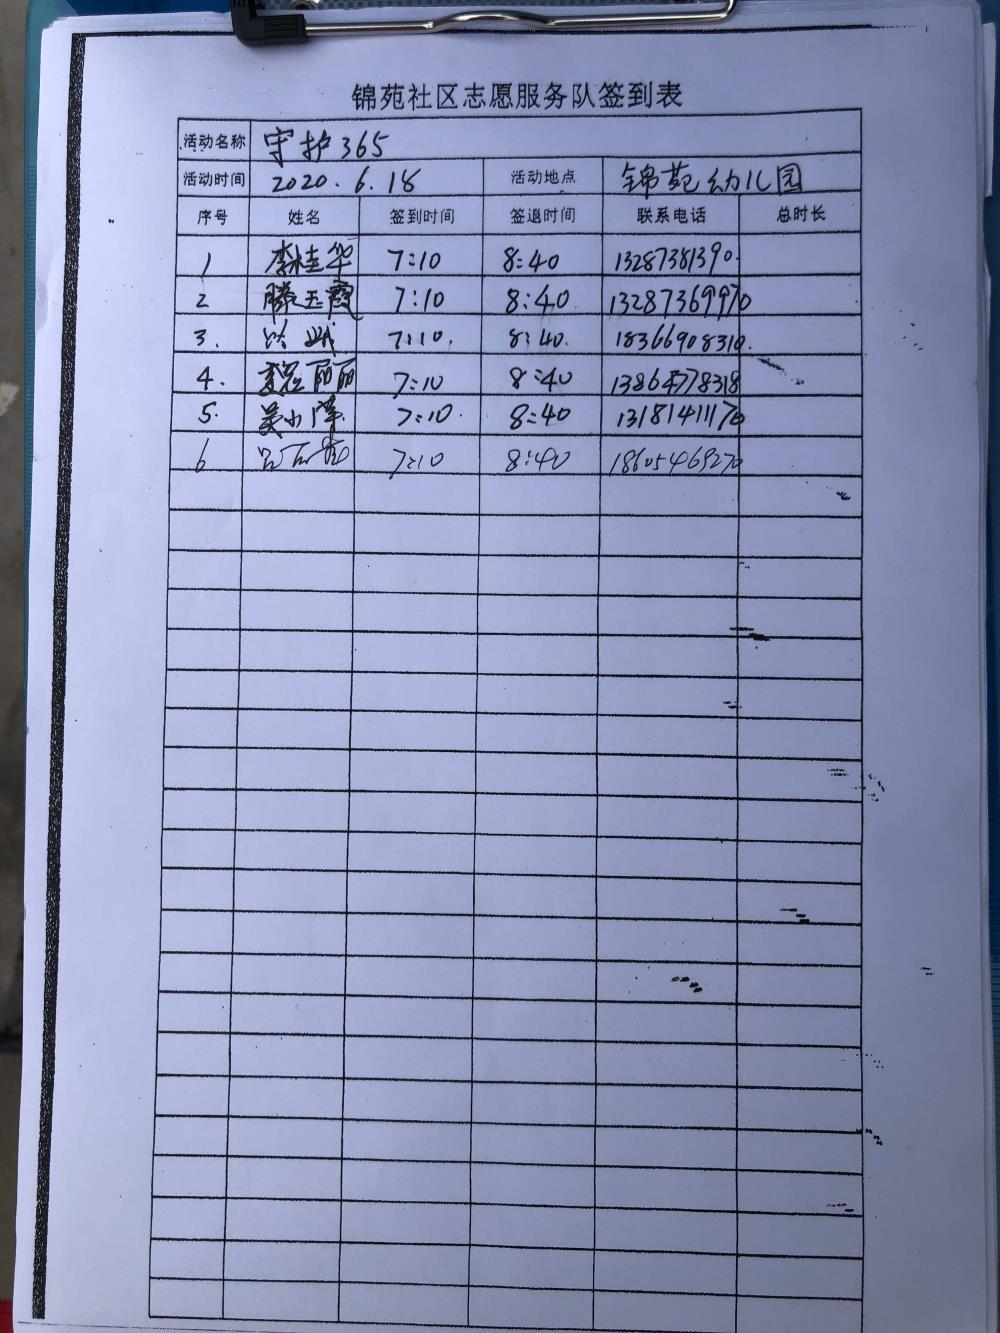 锦苑社区志愿服务队签到表
活动名称 守护365
活动时间 2020.6.18 活动地点 锦苑幼儿园
序号 姓名 签到时间 签退时间 联系电话 总时长
1 李桂华 7:10 8:40 13287381390
2 滕玉霞 7:10 8:40 13287369970
3. 7:10. 8:40. 18366908310.
4. 丽丽 7:10 8:40 13864778318
5. 吴小萍 7:10. 8:40 13181411170
6 7:10 8:40 18605469270